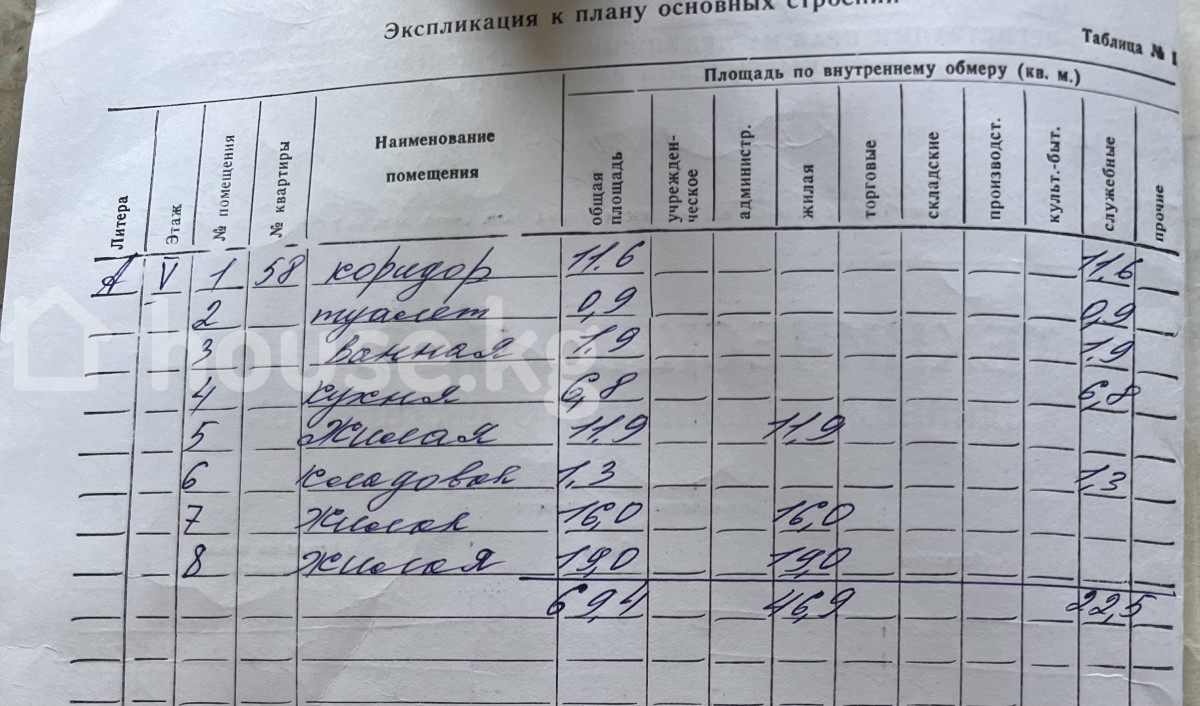 Экспликация к плану основных строений
Таблица № 1
Площадь по внутреннему обмеру (кв. м.)
Литера
Этаж
№ помещения
№ квартиры
Наименование помещения
общая площадь
учрежден-ческое
администр.
жилая
торговые
складские
производст.
культ.-быт.
служебные
прочие
А V 1 58 коридор 11.6 11,6
2 туалет 0,9 0,9
3 ванная 1,9 1,9
4 кухня 6,8 6,8
5 Жилая 11,9 11,9
6 кладовая 1,3 1,3
7 Жилая 16,0 16,0
8 Жилая 19,0 19,0
69,4 46,9 22,5
house.kg